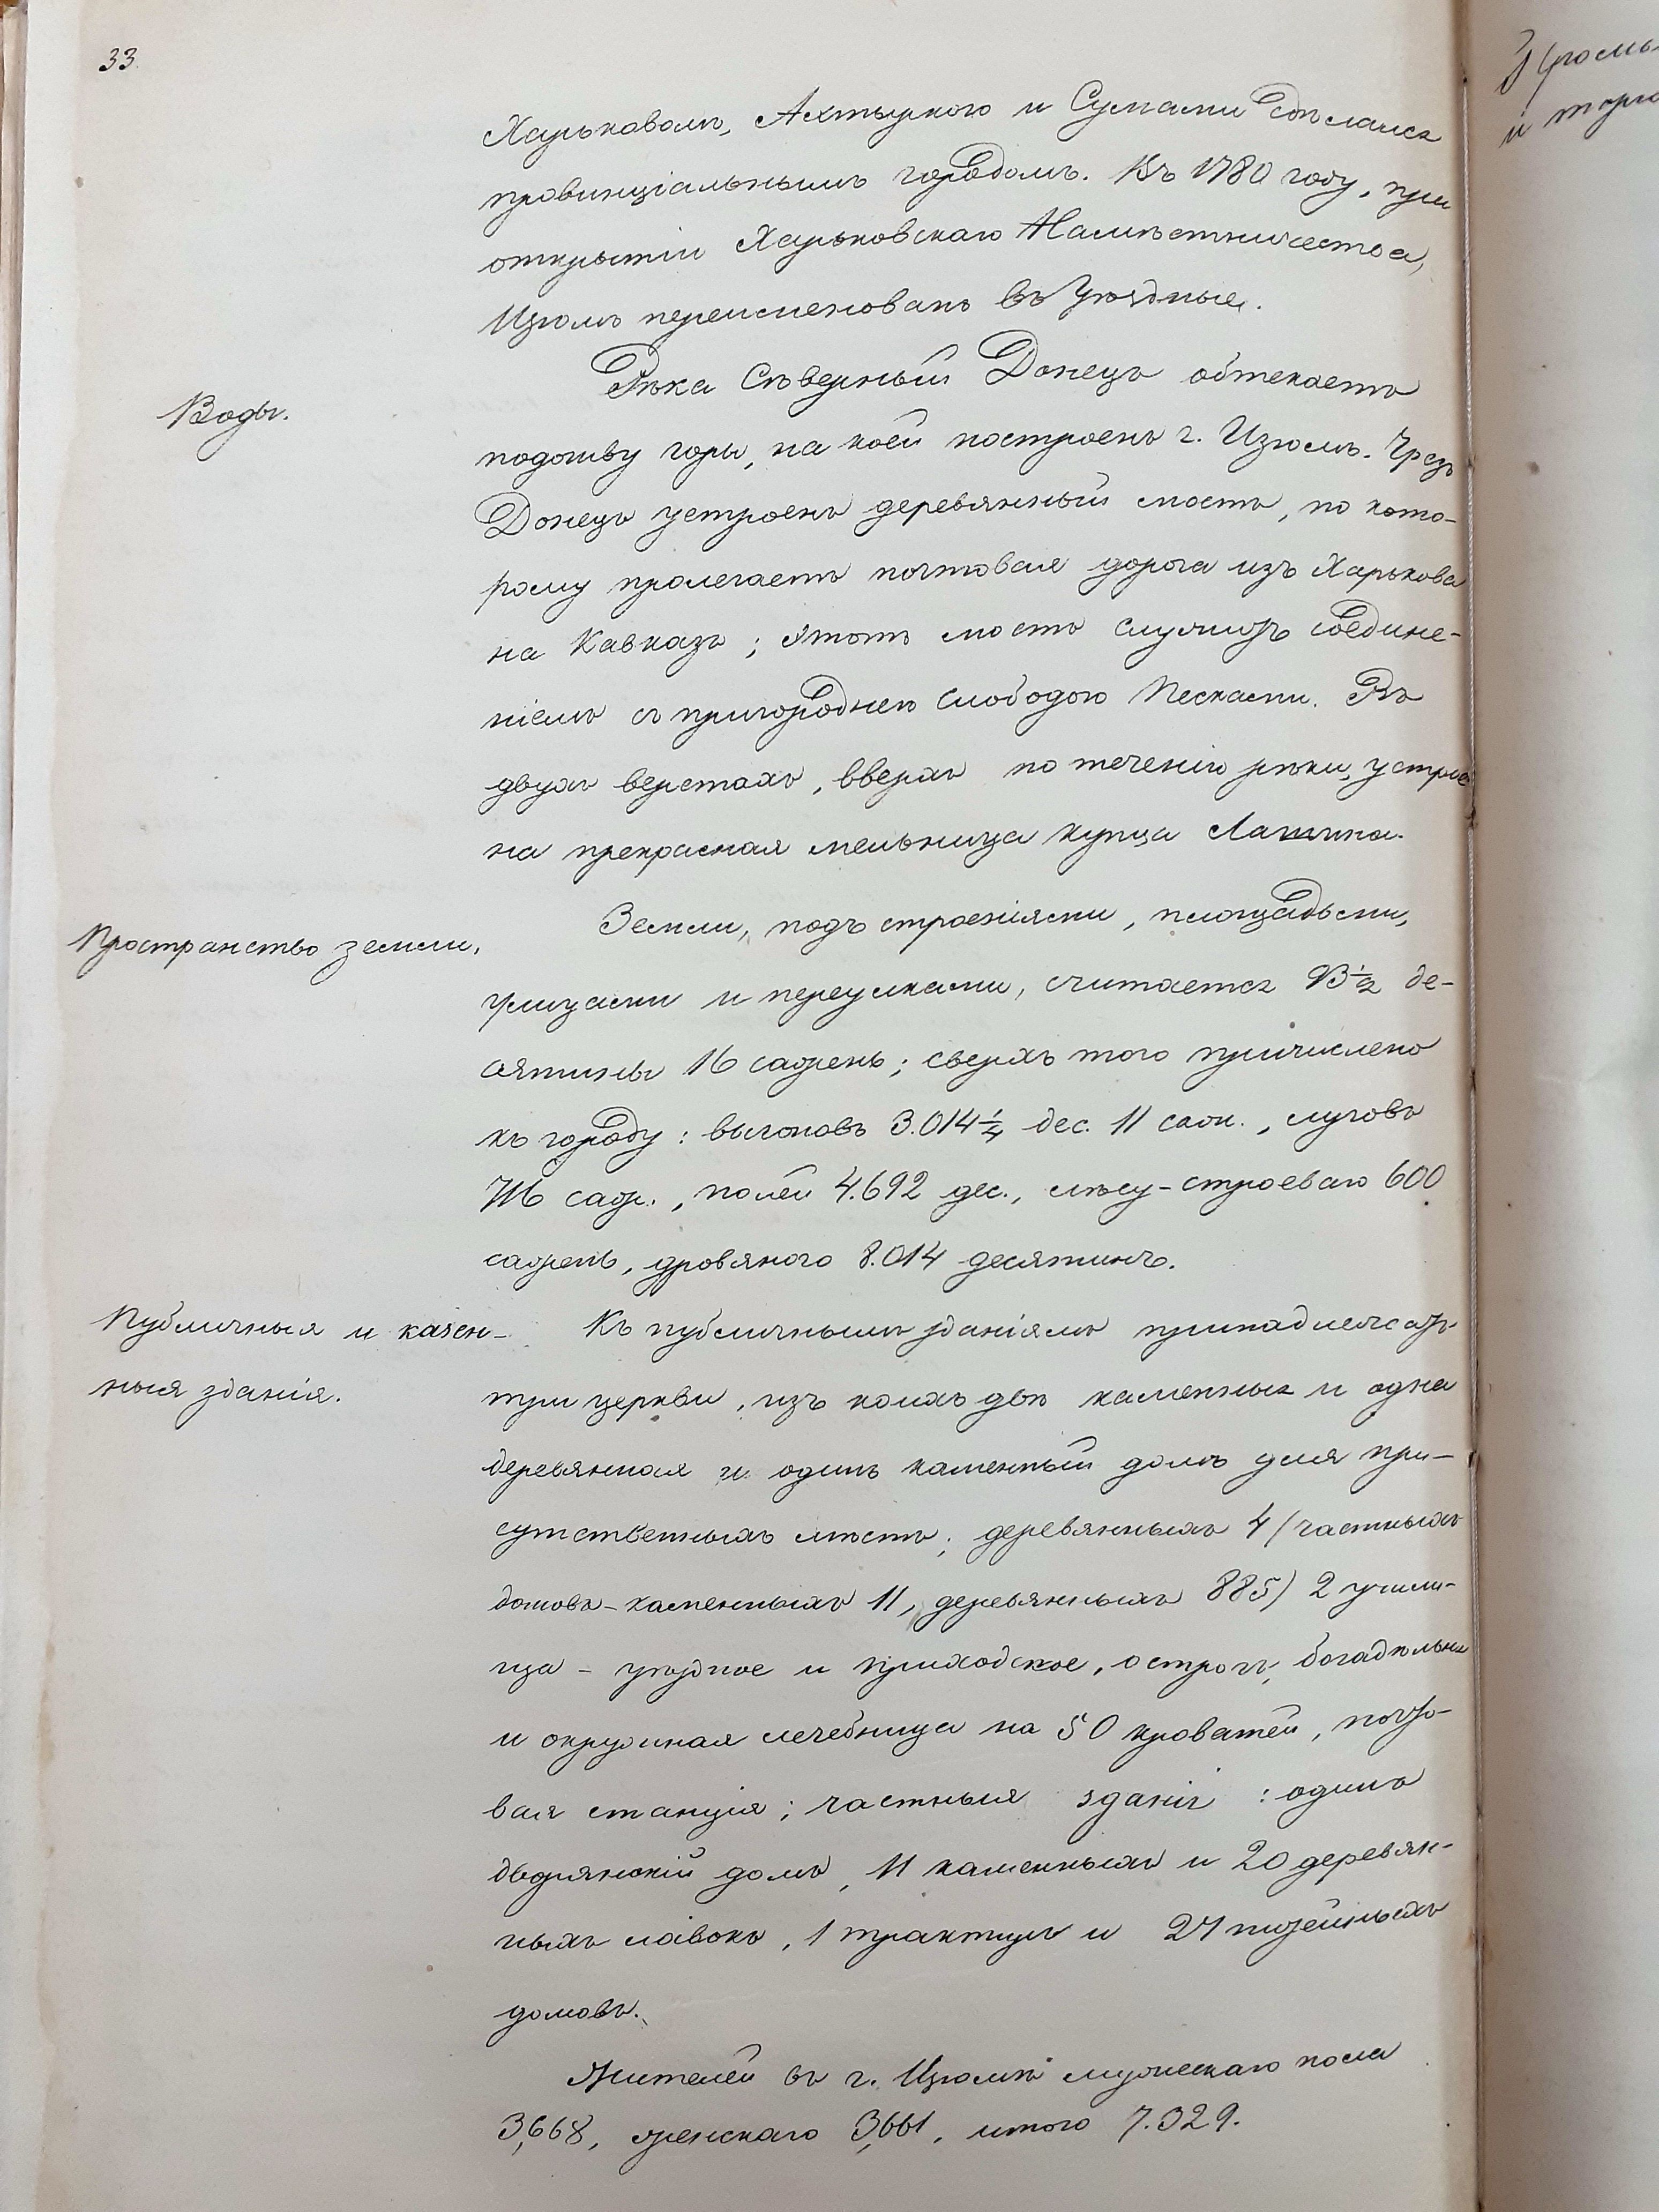 33
Харьковомъ, Ахтыркою и Сумами сдѣлался
провинціальнымъ городомъ. Въ 1780 году, при
открытіи Харьковскаго Намѣстничества,
Изюмъ переименованъ въ Уѣздные.
Воды.
Рѣка Сѣверный Донецъ обтекаетъ
подошву горы, на коей построенъ г. Изюмъ. Чрезъ
Донецъ устроенъ деревянный мостъ, по кото-
рому пролегаетъ почтовая дорога изъ Харькова
на Кавказъ; этотъ мостъ служитъ соедине-
ніемъ съ пригороднею слободою Песками. Въ
двухъ верстахъ, вверхъ по теченію рѣки, устрое
на прекрасная мельница купца Лашина.
Пространство земли.
Земли, подъ строеніями, площадьми,
улицами и переулками, считается 93½ де-
сятины 16 сажень; сверхъ того причислено
къ городу: выгоновъ 3.014¼ дес. 11 саж., луговъ
716 саж., полей 4.692 дес., лѣсу-строеваго 600
сажень, дровянаго 8.014 десятинъ.
Публичныя и казен-
ныя зданія.
Къ публичнымъ зданіямъ принадлежатъ
три церкви, изъ коихъ двѣ каменныя и одна
деревянная и одинъ каменный домъ для при-
сутственныхъ мѣстъ; деревянныхъ 4 (частныхъ
домовъ-каменныхъ 11, деревянныхъ 885) 2 учили-
ща - уѣздное и приходское, острогъ, богадѣльня
и окружная лечебница на 50 кроватей, почто-
вая станція; частныя зданія: одинъ
дворянскій домъ, 11 каменныхъ и 20 деревян-
ныхъ лавокъ, 1 трактиръ и 27 питейныхъ
домовъ.
Жителей въ г. Изюмѣ мужескаго пола
3,668, женскаго 3,661, итого 7.329.